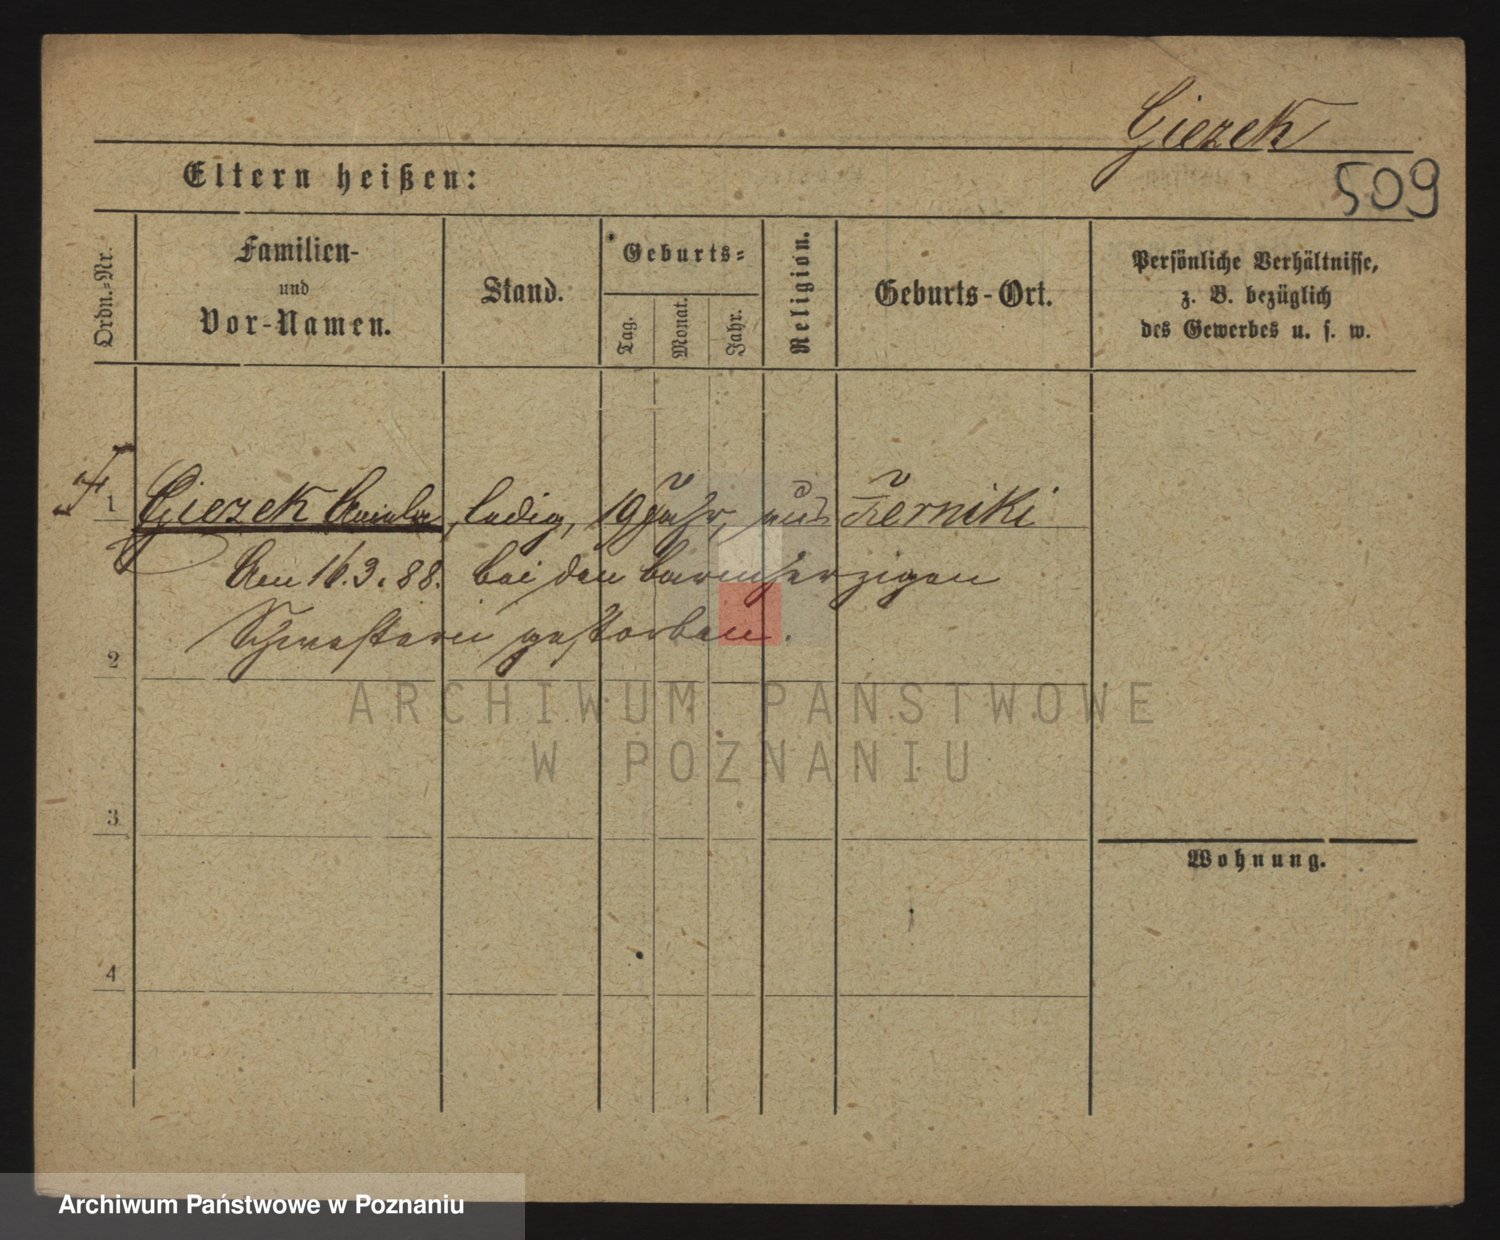 Giezek
509
Eltern heißen:
Ordn.-Nr.
Familien-
und
Vor-Namen.
Stand.
Geburts-
Tag.
Monat.
Jahr.
Religion.
Geburts-Ort.
Persönliche Verhältnisse,
z. B. bezüglich
des Gewerbes u. s. w.
1 Giezek ledig, 19 Jahr, aus Zerniki
Am 16.3.88. bei den barmherzigen
Schwestern gestorben.
2
3
4
Wohnung.
ARCHIWUM PAŃSTWOWE
W POZNANIU
Archiwum Państwowe w Poznaniu